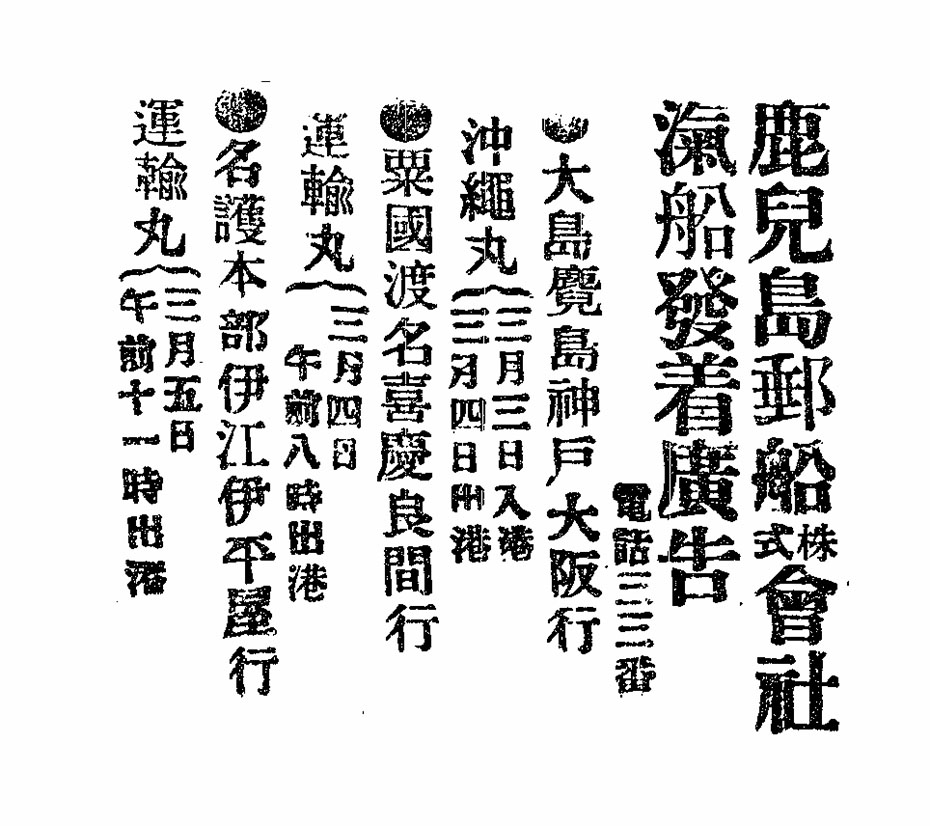 鹿兒島郵船株式會社
滊船發着廣告
電話三三番
●大島麑島神戸大阪行
沖繩丸
三月三日入港
三月四日出港
●粟國渡名喜慶良間行
運輸丸
三月四日
午前八時出港
●名護本部伊江伊平屋行
運輸丸
三月五日
午前十一時出港